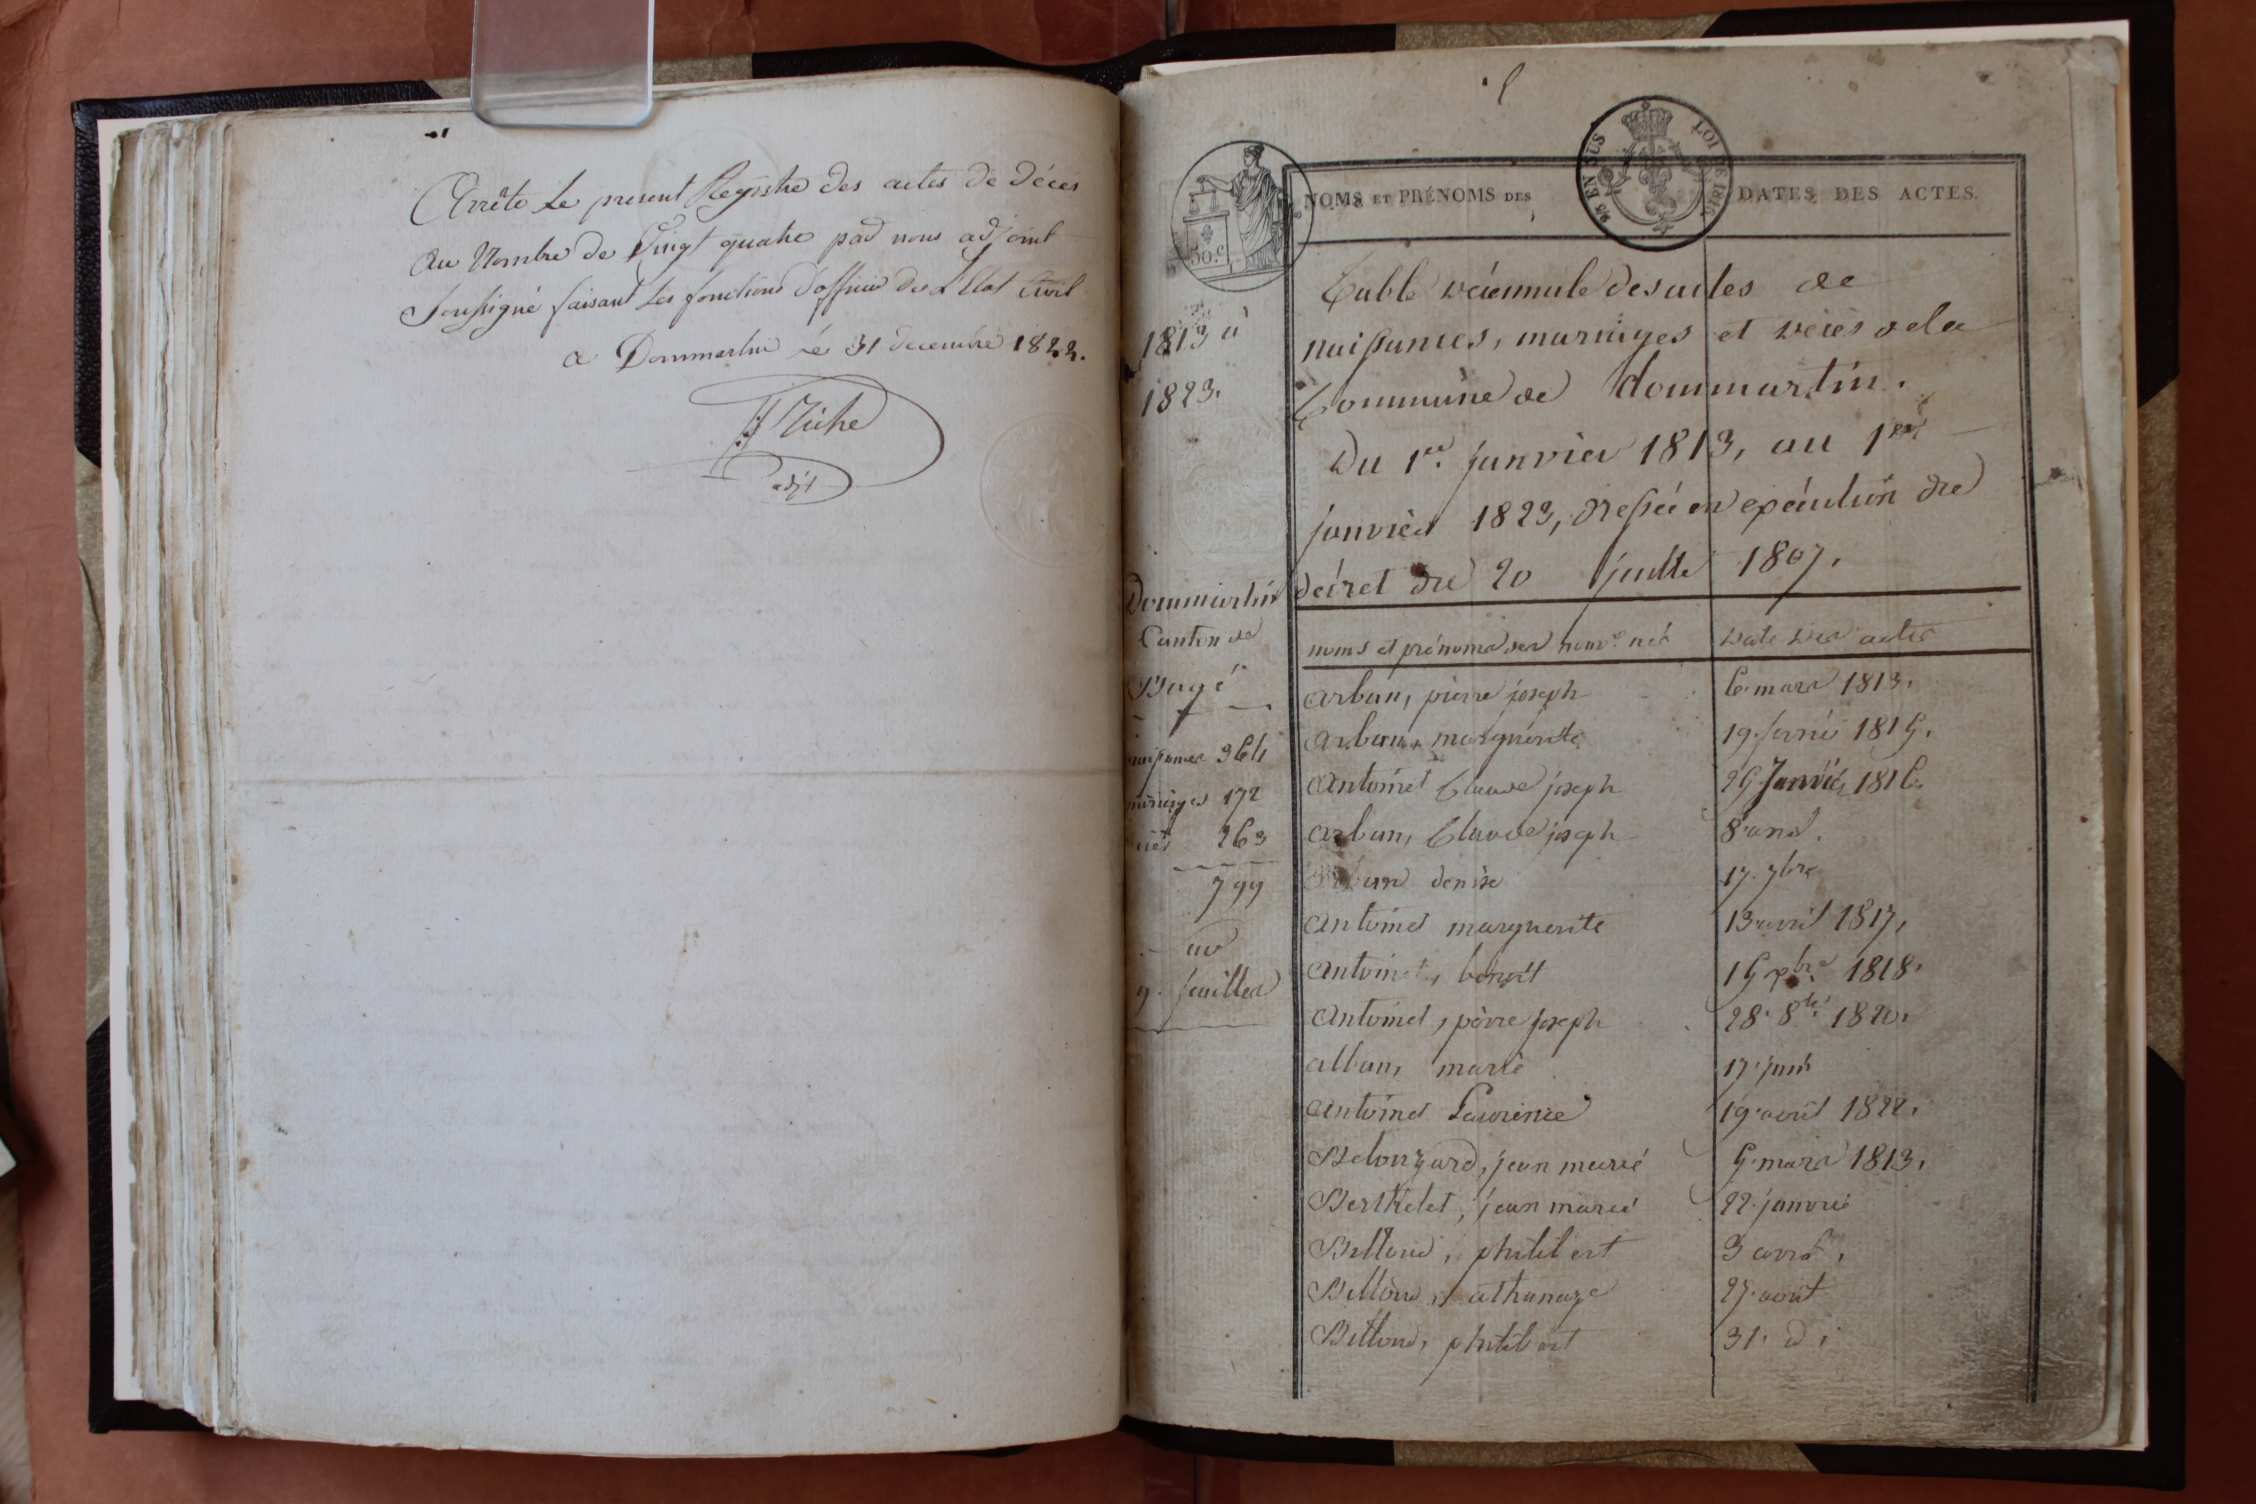 Arrêté le present Registre des actes de décès
Au Nombre de Vingt quatre par nous adjoint
soussigné faisant les fonctions d'officier de l'Etat Civil
a Dommartin le 31 decembre 1822.
adjt
50.c
LOI DE 1816
EN SUS
NOMS ET PRÉNOMS DES
DATES DES ACTES.
1813 à
1823.
Table décennale des actes de
naissances, mariages et décès de la
Commune de dommartin.
Du 1er janvier 1813, au 1er
janvier 1823, dressée en exécution du
décret du 20 juillet 1807.
Dommartin
Canton de
Bagé
naissances 364
mariages 172
décès 263
799
9 feuilles
noms et prénoms des nouv. nés
date des actes
arban, pierre joseph
6 mars 1813.
arban, marguerite
19 janvier 1815.
antoinet Claude joseph
25 Janvier 1816.
arban, Claude joseph
8 aout.
arban denise
17. 7bre
antoinet marguerite
13 avril 1817,
antoinet, benoit
15 xbre 1818.
antoinet, pierre joseph
28. 8bre 1820.
alban, marie
17. juin
antoinet Laurence
19. avril 1822.
Belouzard, jean marie
5. mars 1813.
Berthelet, jean marie
22. janvier
Billoud, philibert
3 avril,
Billoud, athanaze
27. aout
Billoud, philibert
31. d.